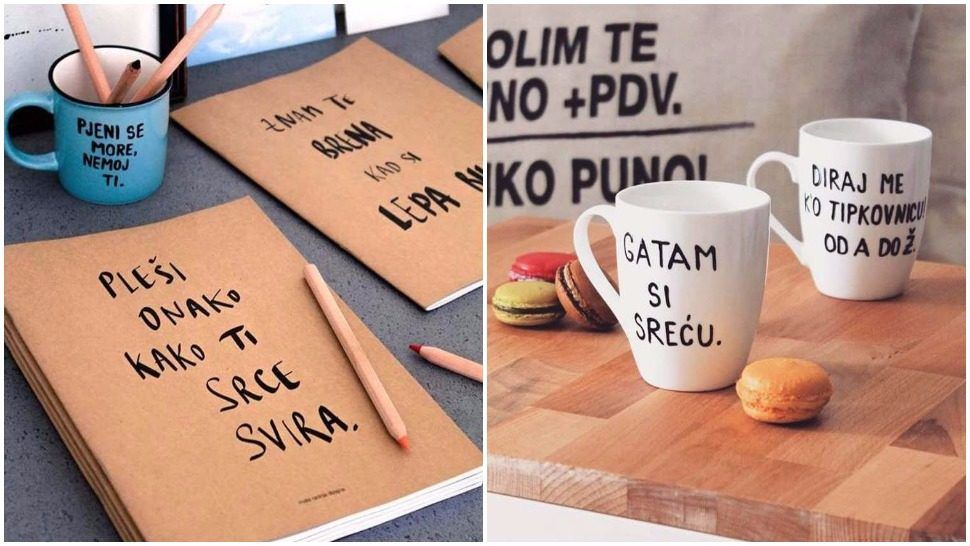 PJENI SE
MORE,
NEMOJ
TI.
ZNAM TE
BRENA
KAD SI
LEPA
PLEŠI
ONAKO
KAKO TI
SRCE
SVIRA.
TE
+PDV.
PUNO!
GATAM
SI
SREĆU.
DIRAJ ME
K'O TIPKOVNICU!
OD A DO Ž.